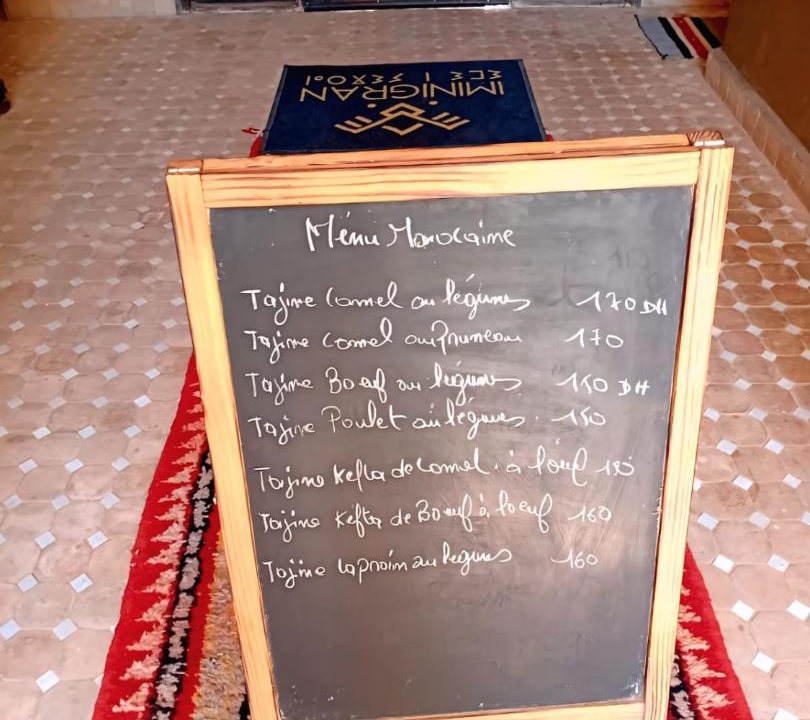 IMINIGRAN
ⵉⵎⵉ ⵏ ⵉⴳⵔⴰⵏ
Ménu Marocaine
Tajine Camel au légumes 170 DH
Tajine Camel au Pruneau 170
Tajine Boeuf au légumes 150 DH
Tajine Poulet au légumes. 150
Tajine Kefta de Camel. à l'oeuf 180
Tajine Kefta de Boeuf à loeuf 160
Tajine au legumes 160